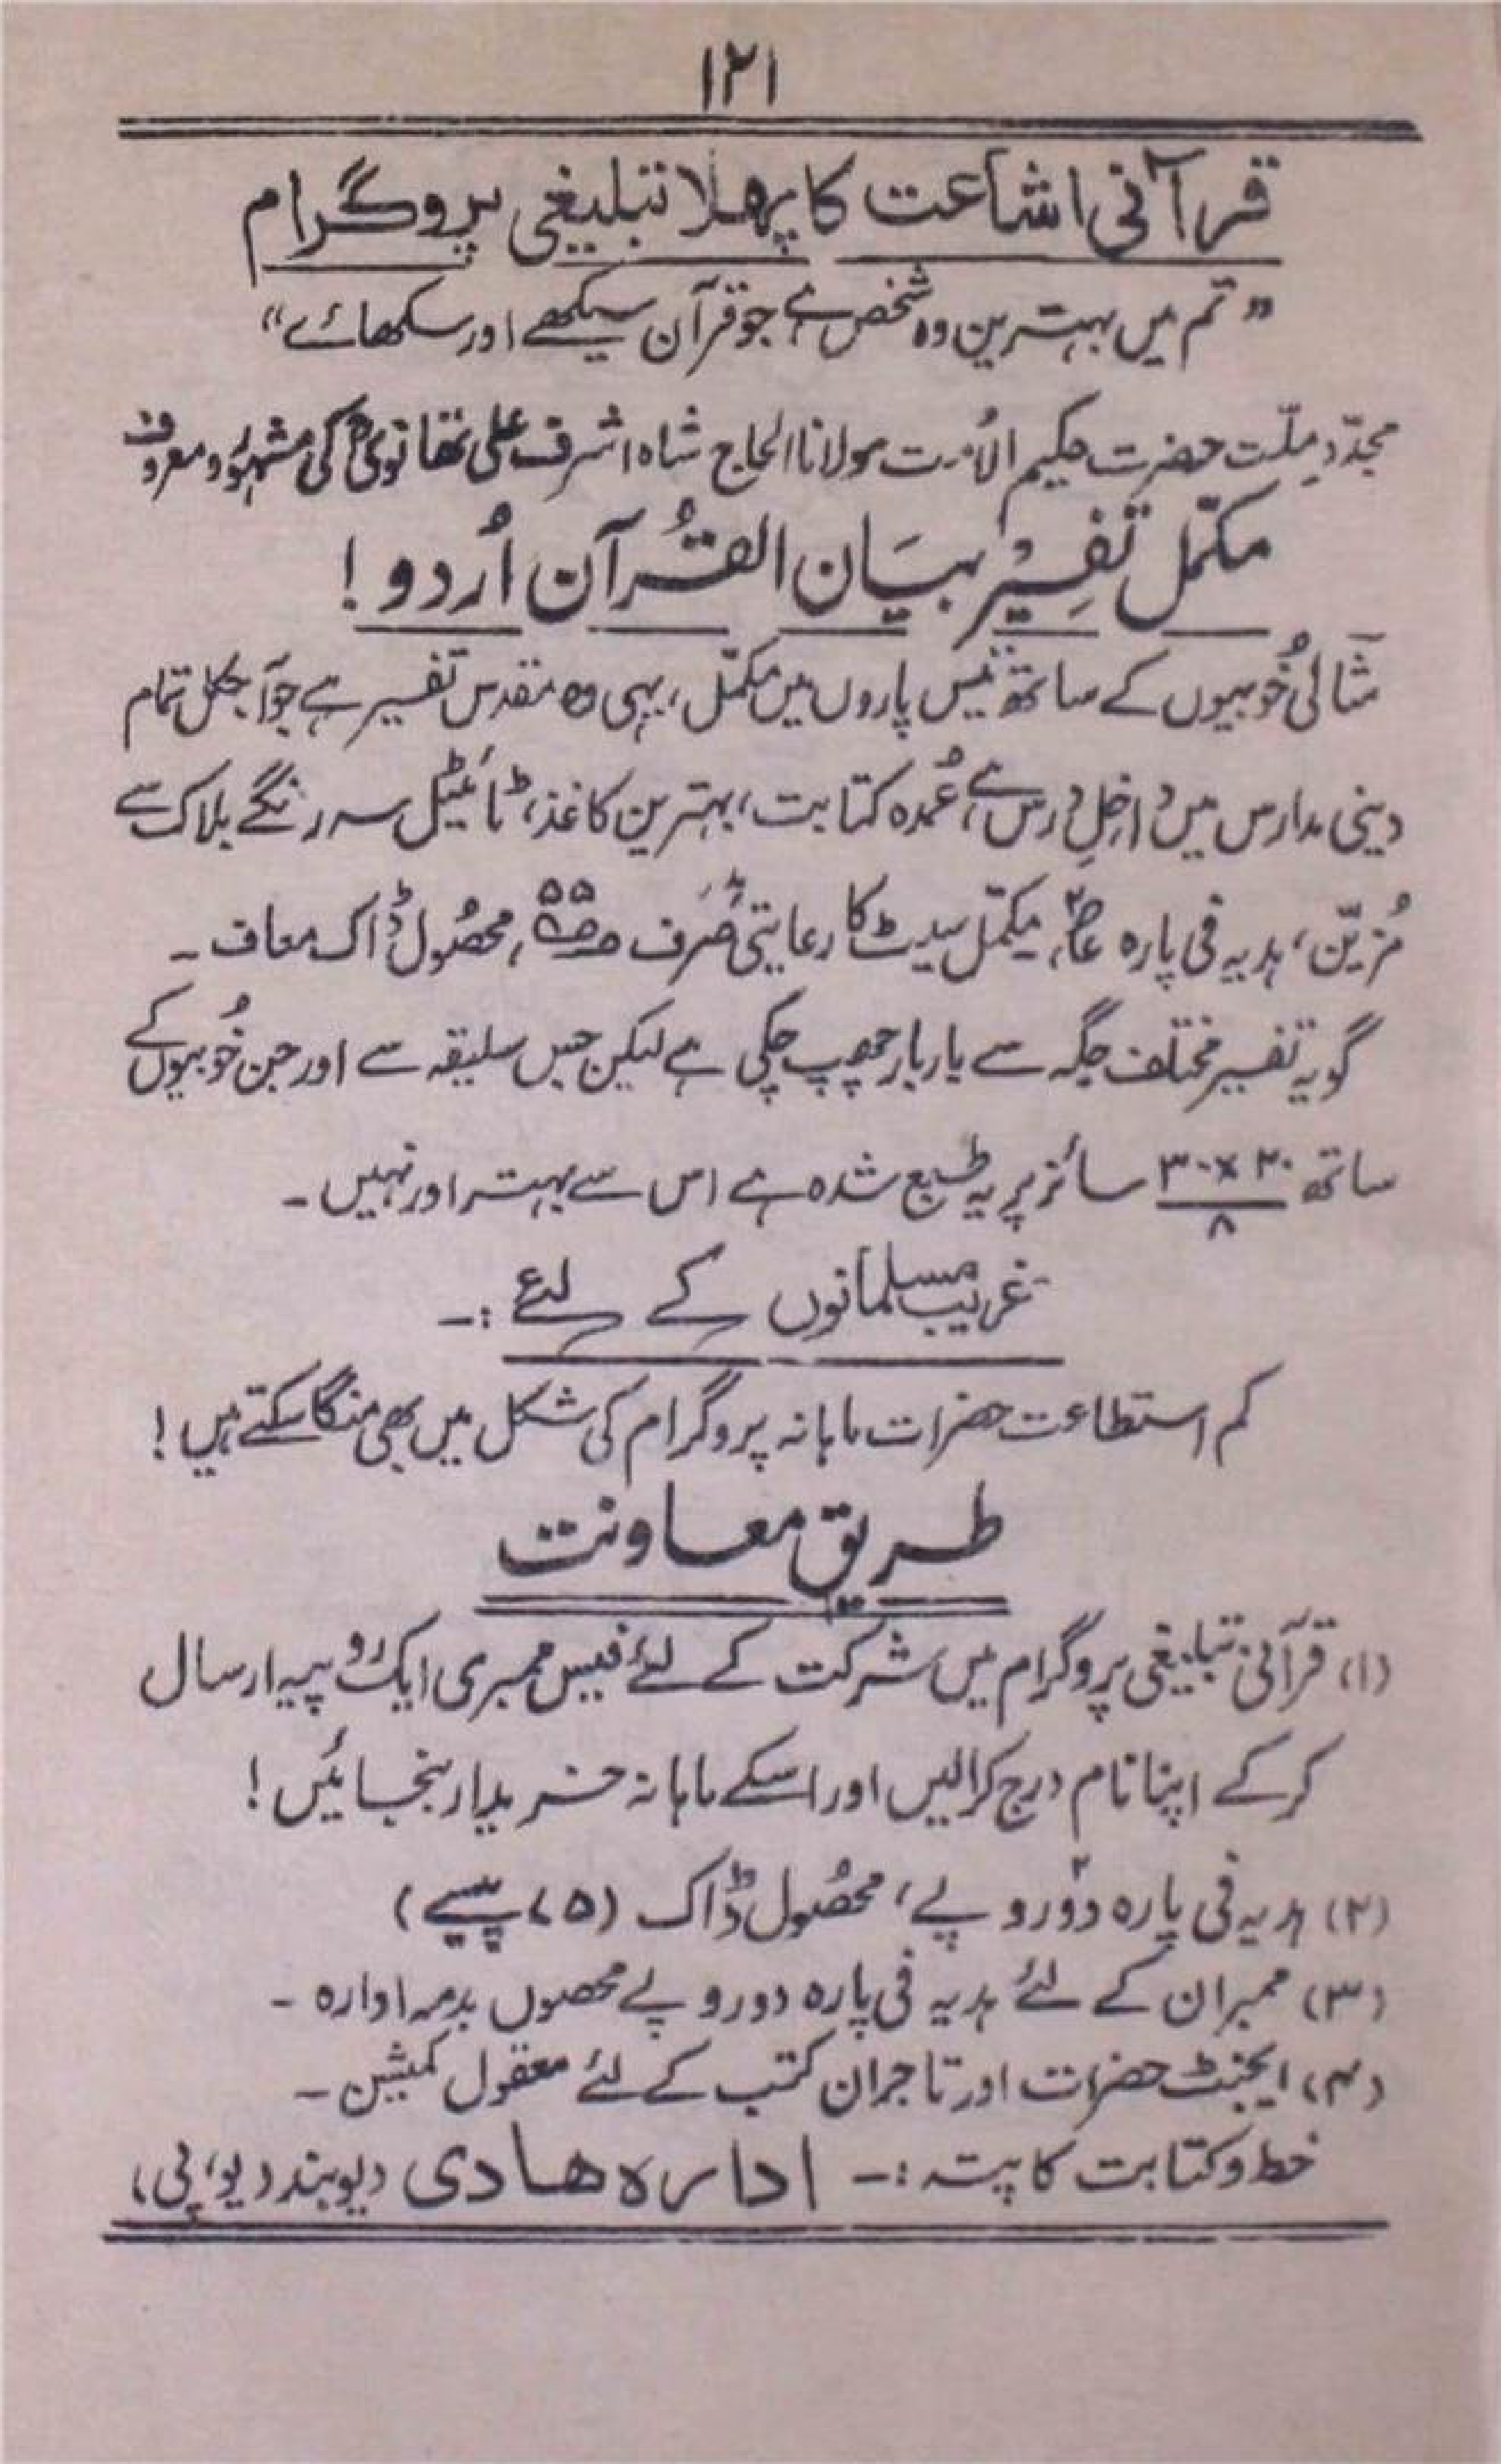 ۱۲۱
قرآنی اشاعت کا پہلا تبلیغی پروگرام
”تم میں بہترین وہ شخص ہے جو قرآن سیکھے اور سکھائے“
مجدّدِ ملّت حضرت حکیم الاُمت مولانا الحاج شاہ اشرف علی تھانویؒ کی مشہور و معروف
مکمّل تفسِیْر بیَان القُرآن اُردو!
مثالی خُوبیوں کے ساتھ تیس پاروں میں مکمّل، یہی وہ مقدس تفسیر ہے جو آجکل تمام
دینی مدارس میں داخلِ درس ہے، عُمدہ کتابت، بہترین کاغذ، ٹائیٹل سہ رنگے بلاک سے
مُزیّن، ہدیہ فی پارہ مکمّل سیٹ کا رعایتی صرف ۵۵، محصُول ڈاک معاف۔
گو یہ تفسیر مختلف جگہ سے بار بار چھپ چکی ہے لیکن جس سلیقہ سے اور جن خُوبیوں کے
ساتھ ۲۰×۳۰/۸ سائز پر یہ طبع شدہ ہے اس سے بہتر اور نہیں۔
غریب مسلمانوں کے لئے :۔
کم استطاعت حضرات ماہانہ پروگرام کی شکل میں بھی منگا سکتے ہیں!
طریق معاونت
(۱) قرآنی تبلیغی پروگرام میں شرکت کے لئے فیس ممبری ایک روپیہ ارسال
کرکے اپنا نام درج کرالیں اور اسکے ماہانہ خریدار بنجائیں!
(۲) ہدیہ فی پارہ دو روپے، محصُول ڈاک (۷۵ پیسے)
(۳) ممبران کے لئے ہدیہ فی پارہ دو روپے محصوں بذمہ ادارہ۔
(۴) ایجنٹ حضرات اور تاجران کتب کے لئے معقول کمیشن۔
خط و کتابت کا پتہ :۔ ادارہ ھادی دیوبند (یو، پی)